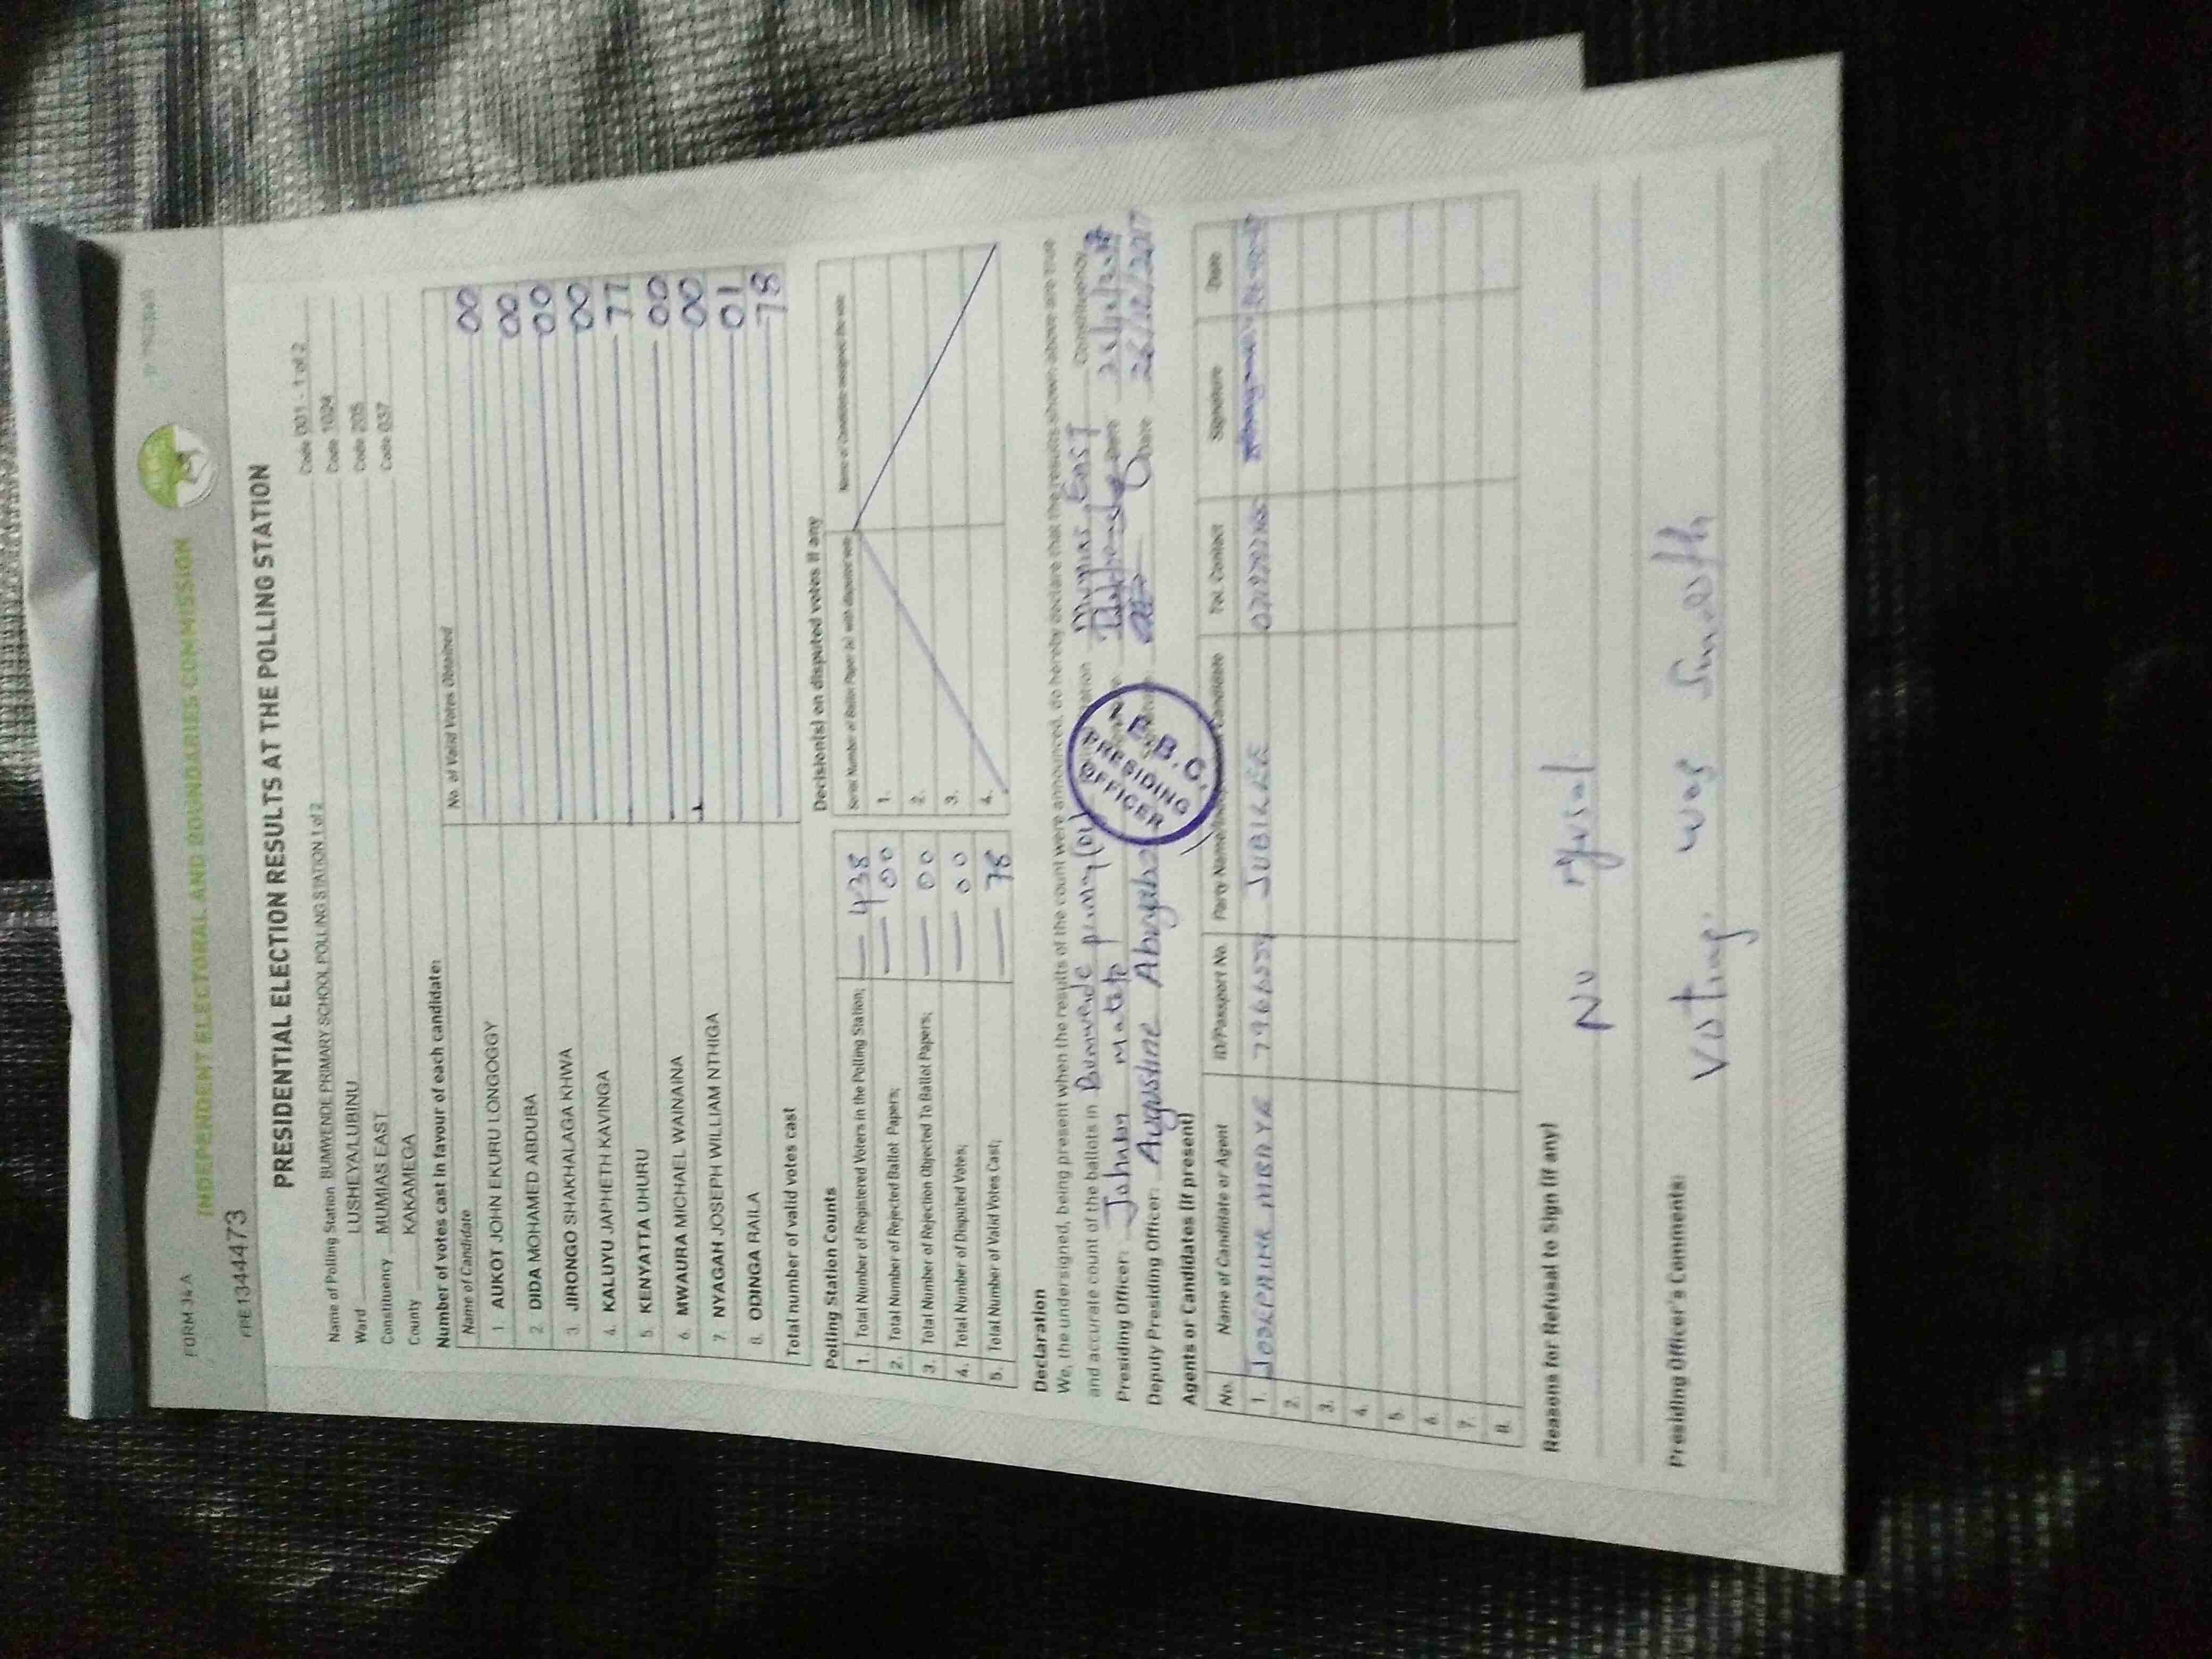 FORM 34A
INDEPENDENT ELECTORAL AND BOUNDARIES COMMISSION
FPE1344473
PRESIDENTIAL ELECTION RESULTS AT THE POLLING STATION
Name of Polling Station BUMWENDE PRIMARY SCHOOL POLLING STATION 1 of 2 Code 001 - 1 of 2
Ward LUSHEYA/LUBINU Code 1024
Constituency MUMIAS EAST Code 205
County KAKAMEGA Code 037
Number of votes cast in favour of each candidate:
Name of Candidate No. of Valid Votes Obtained
1 AUKOT JOHN EKURU LONGOGGY 00
2. DIDA MOHAMED ABDUBA 00
3. JIRONGO SHAKHALAGA KHWA 00
4. KALUYU JAPHETH KAVINGA 00
5 KENYATTA UHURU 77
6. MWAURA MICHAEL WAINAINA 00
7. NYAGAH JOSEPH WILLIAM NTHIGA 00
8. ODINGA RAILA 01
Total number of valid votes cast 78
Polling Station Counts
1. Total Number of Registered Voters in the Polling Station; 438
2. Total Number of Rejected Ballot Papers; 00
3. Total Number of Rejection Objected To Ballot Papers; 00
4. Total Number of Disputed Votes; 00
5. Total Number of Valid Votes Cast; 78
Decision(s) on disputed votes if any
Serial Number of Ballot Paper (s) with disputed vote Name of Candidate assigned the vote
1.
2.
3.
4.
Declaration
We, the undersigned, being present when the results of the count were announced, do hereby declare that the results shown above are true
and accurate count of the ballots in Bumwende Mumias East Constituency
Presiding Officer: Date
Deputy Presiding Officer: Augustine Date 26/10/2017
I.E.B.C.
PRESIDING
OFFICER
Agents or Candidates (if present)
No. Name of Candidate or Agent ID/Passport No. Candidate Tel. Contact Signature Date
1. JUBILEE
2.
3.
4.
5.
6.
7.
8.
Reasons for Refusal to Sign (if any)
No refusal
Presiding Officer's Comments:
Voting was smooth